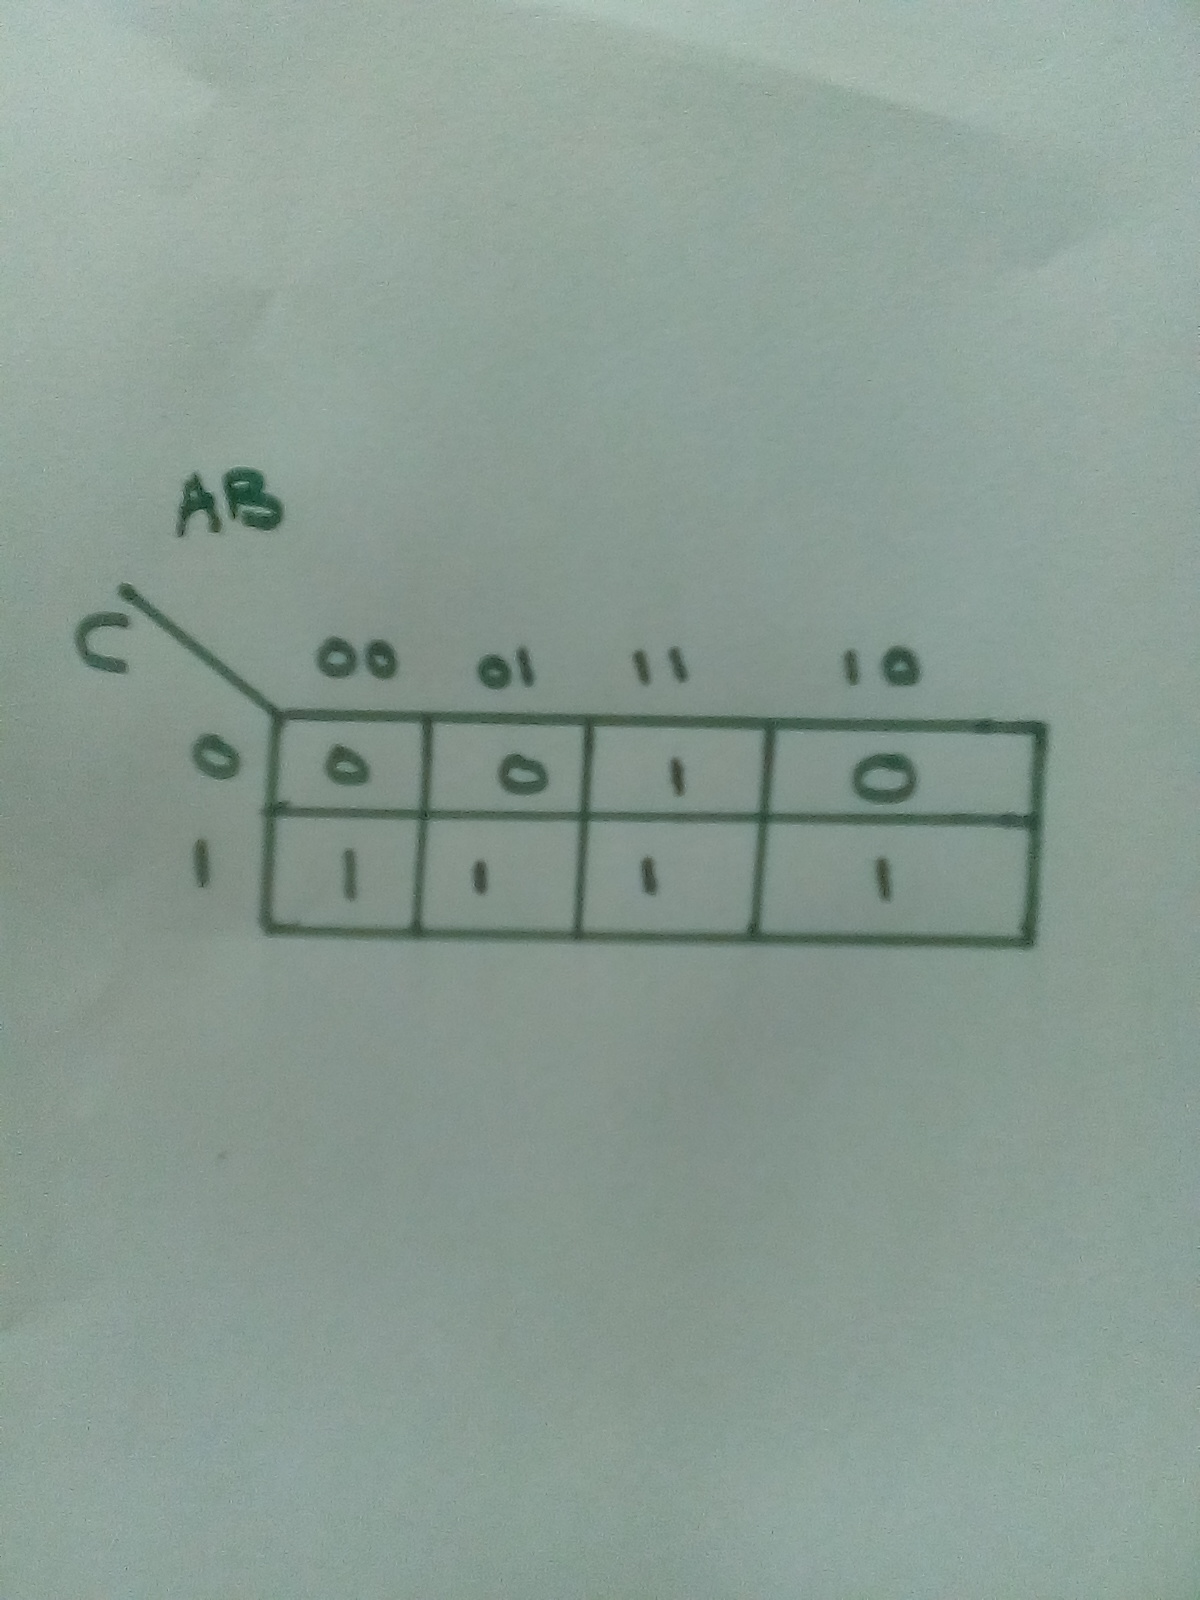 AB
C
00 01 11 10
0 0 0 1 0
1 1 1 1 1